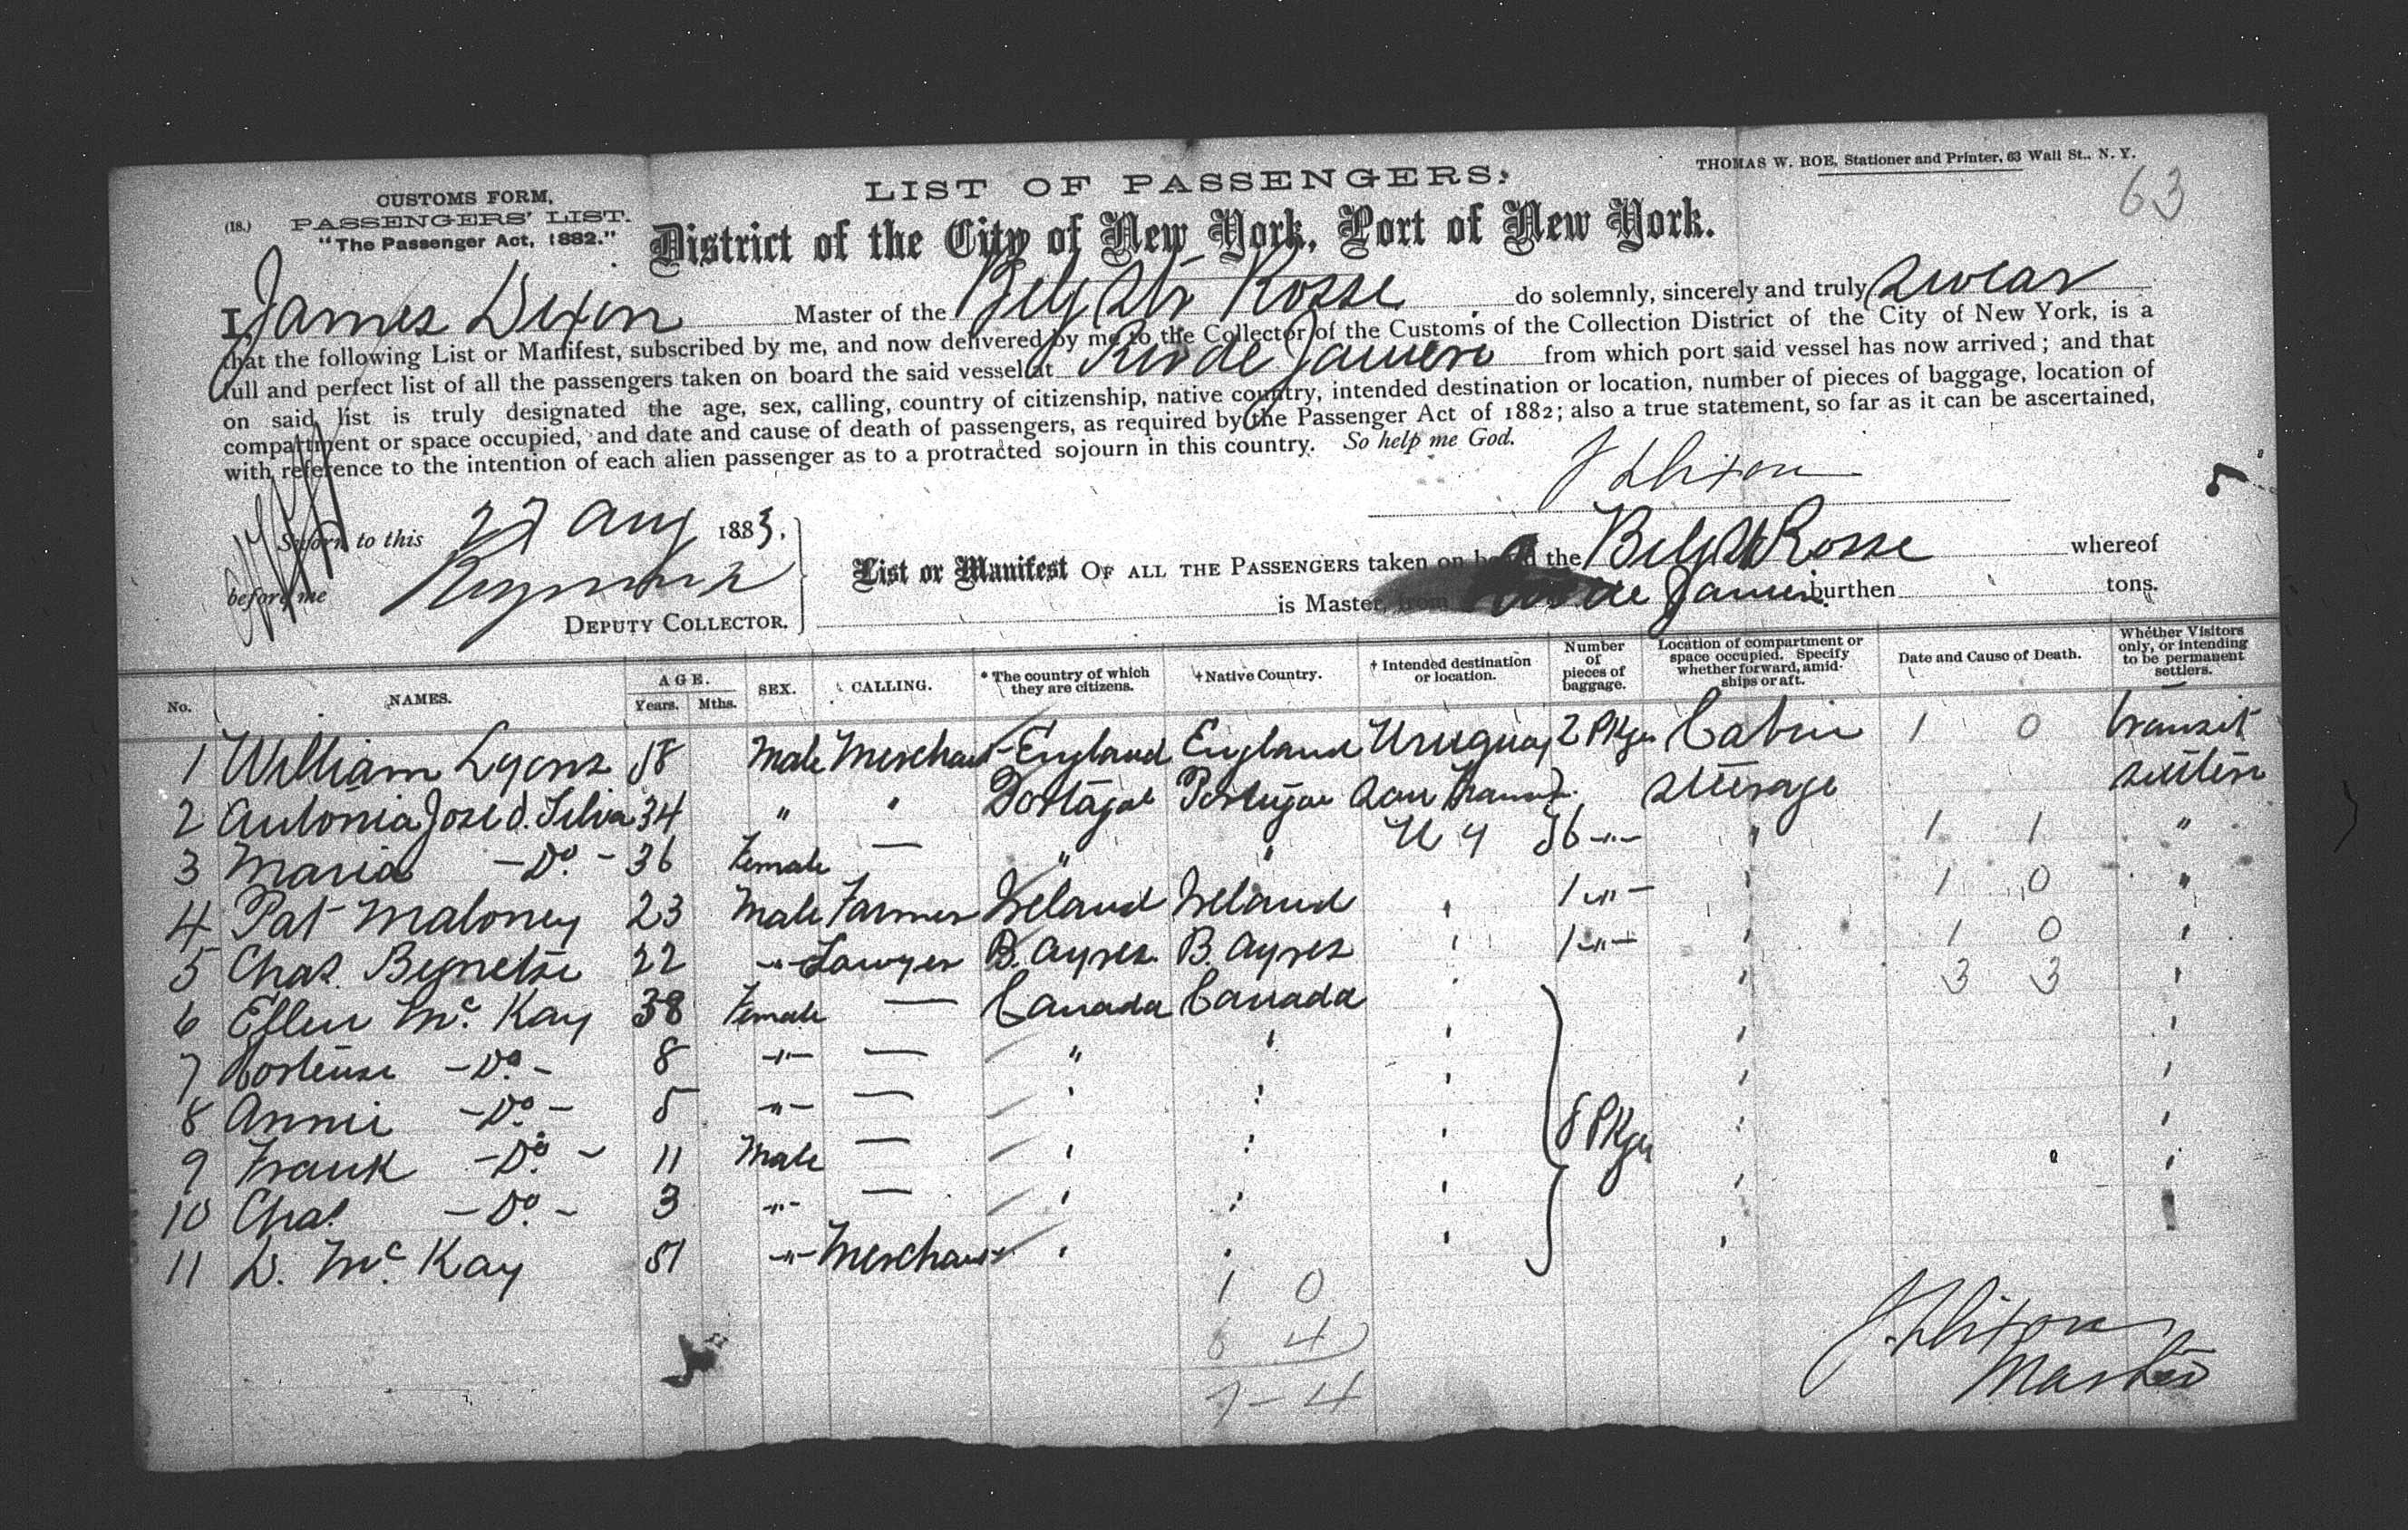 THOMAS W. ROE, Stationer and Printer, 63 Wall St., N. Y.
63
CUSTOMS FORM,
(18.) PASSENGERS' LIST.
"The Passenger Act, 1882."
LIST OF PASSENGERS.
District of the City of New York, Port of New York.
I, James Dixon Master of the Belg Str Rosse do solemnly, sincerely and truly swear
that the following List or Manifest, subscribed by me, and now delivered by me to the Collector of the Customs of the Collection District of the City of New York, is a
full and perfect list of all the passengers taken on board the said vessel at Rio de Janeiro from which port said vessel has now arrived; and that
on said list is truly designated the age, sex, calling, country of citizenship, native country, intended destination or location, number of pieces of baggage, location of
compartment or space occupied, and date and cause of death of passengers, as required by the Passenger Act of 1882; also a true statement, so far as it can be ascertained,
with reference to the intention of each alien passenger as to a protracted sojourn in this country. So help me God.
J Dixon
Sworn to this 27 Aug 1883,
before me
DEPUTY COLLECTOR.
List or Manifest OF ALL THE PASSENGERS taken on board the Belg Str Rosse whereof
is Master, from Rio de Janeiro burthen tons.
No. NAMES. AGE. Years. Mths. SEX. CALLING. * The country of which they are citizens. † Native Country. † Intended destination or location. Number of pieces of baggage. Location of compartment or space occupied. Specify whether forward, amidships or aft. Date and Cause of Death. Whether Visitors only, or intending to be permanent settlers.
1 William Lyons 58 Male Merchant England England Uruguay 2 Pkgs Cabin 1 0 transit
2 Antonia Jose d. Silva 34 " " Portugal Portugal San Franc. Steerage settlers
3 Maria - Do - 36 Female — " " N Y 6 -"- " 1 1 "
4 Pat Maloney 23 Male Farmer Ireland Ireland " 1 -"- " 1 0 "
5 Chas. 22 -"- Lawyer B. Ayres B. Ayres " 1 -"- " 1 0 "
6 Ellen Mc Kay 38 Female — Canada Canada " " 3 3 "
7 Hortense - Do - 8 -"- — " " " " "
8 Annie - Do - 5 -"- — " " " 8 Pkgs " "
9 Frank - Do - 11 Male — " " " " "
10 Chas - Do - 3 -"- — " " " " "
11 D. Mc Kay 51 -"- Merchant " " " "
1 0
6 4
7 - 4
J. Dixon
Master